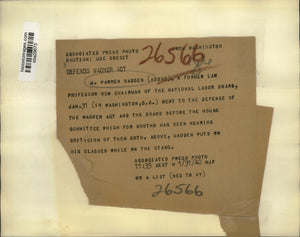 ASSOCIATED PRESS PHOTO
WASHINGTON
CAUTION: USE CREDIT
26566
DEFENDS WAGNER ACT
W. WARREN MADDEN (ABOVE), A FORMER LAW
PROFESSOR NOW CHAIRMAN OF THE NATIONAL LABOR BOARD,
JAN. 31 (IN WASHINGTON, D.C.) WENT TO THE DEFENSE OF
THE WAGNER ACT AND THE BOARD BEFORE THE HOUSE
COMMITTEE WHICH FOR MONTHS HAS BEEN HEARING
CRITICISM OF THEM BOTH. ABOVE, MADDEN PUTS ON
HIS GLASSES WHILE ON THE STAND.
ASSOCIATED PRESS PHOTO
1/31/40
A LIST (NEG TO NY)
26566